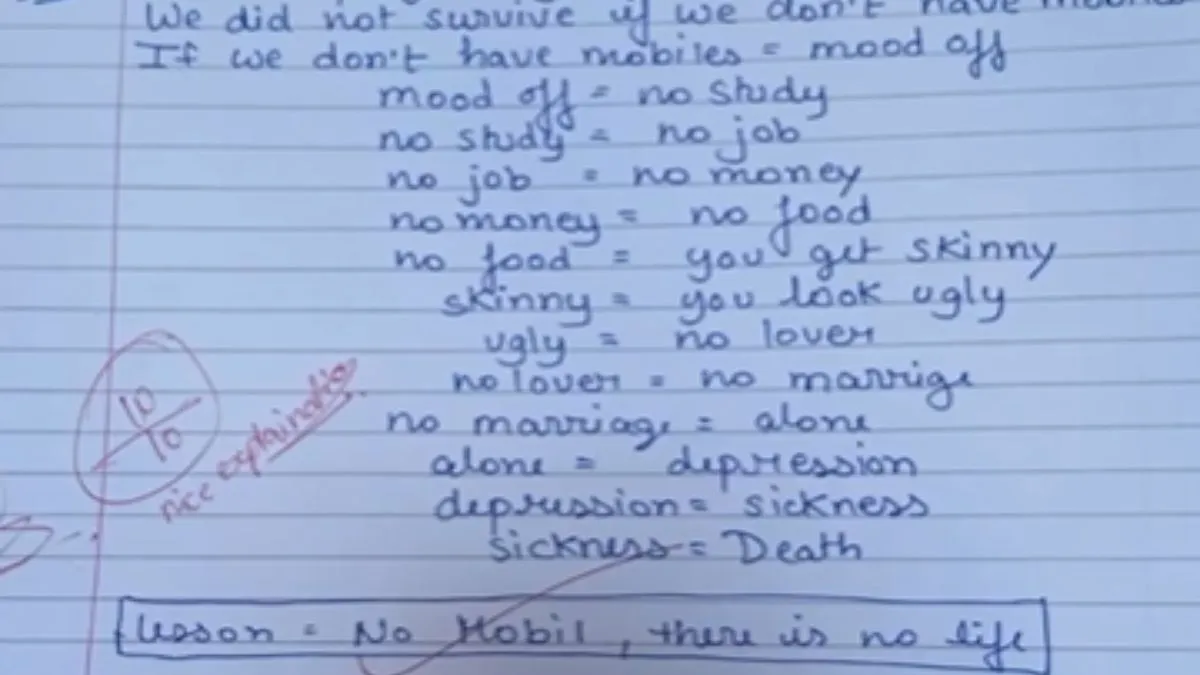 We did not survive if we don't have
If we don't have mobiles = mood off
mood off = no study
no study = no job
no job = no money
no money = no food
no food = you get skinny
skinny = you look ugly
ugly = no lover
no lover = no marrige
no marriage = alone
alone = depression
depression = sickness
sickness = Death
10/10
nice explaination
lesson = No Mobil, there is no life